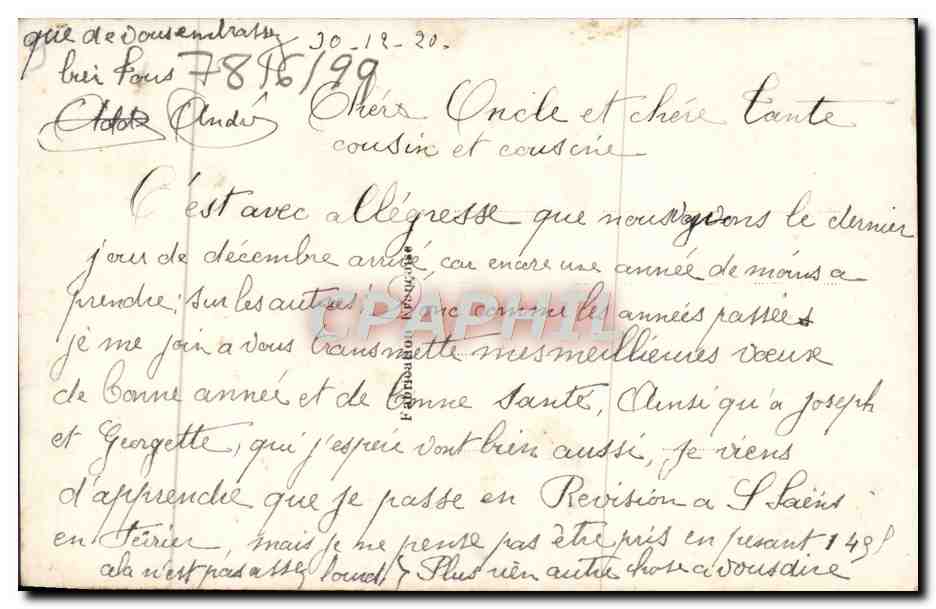 que de vous embrasser
bien tous
André
30-12-20.
7816/99
Chers Oncle et chère Tante
cousin et cousine
C'est avec allégresse que nous voyons le dernier
jour de décembre arrivé, car encore une année de moins a
prendre sur les autres! Donc comme les années passées
je me join a vous transmettre mes meillieures vœux
de bonne année et de bonne santé, Ainsi qu'a Joseph
et Georgette, qui j'espère vont bien aussi, je viens
d'apprendre que je passe en Revision a S Saëns
en Février, mais je ne pense pas être pris en pesant
cela n'est pas assez lourd, Plus rien autre chose a vous dire
Fabrication Française
CPAPHIL